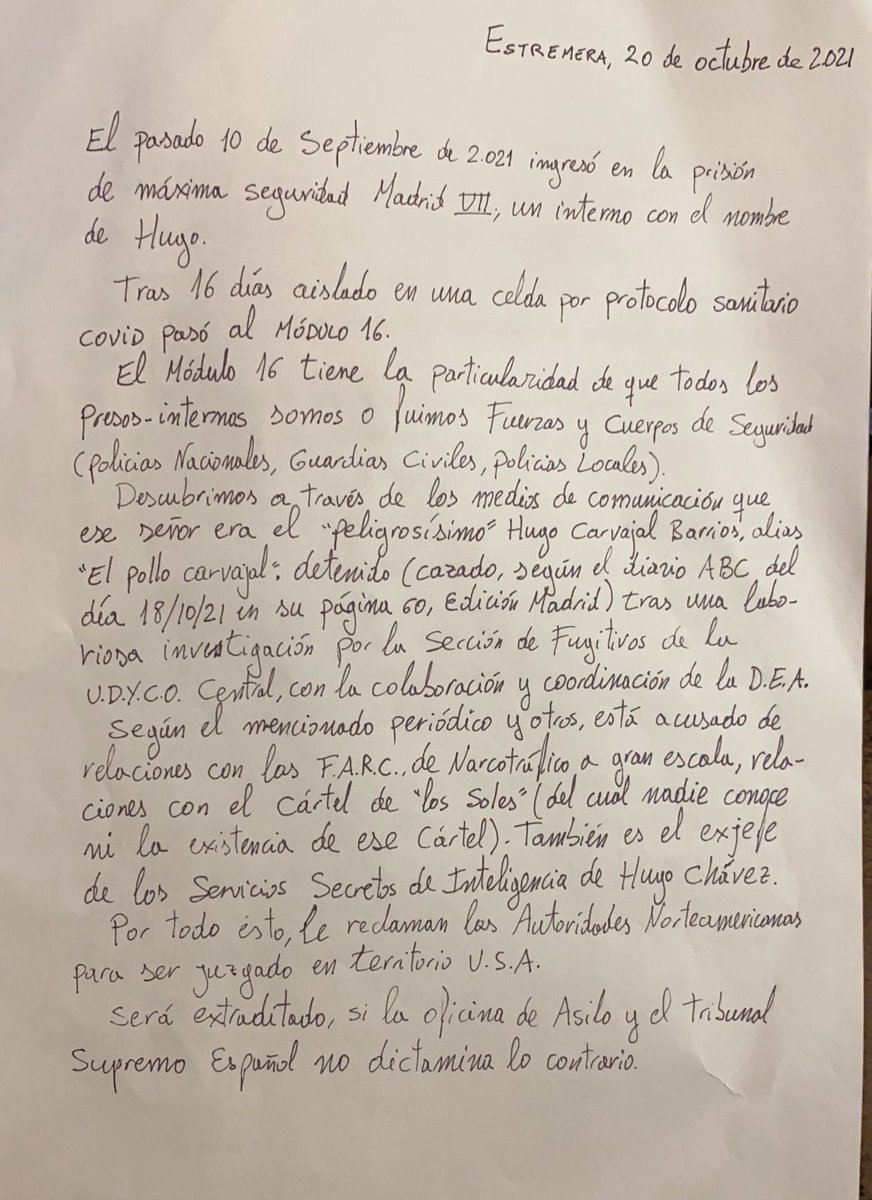 ESTREMERA, 20 de octubre de 2.021
El pasado 10 de Septiembre de 2.021 ingresó en la prisión
de máxima seguridad Madrid VII, un interno con el nombre
de Hugo.
Tras 16 días aislado en una celda por protocolo sanitario
covid pasó al MÓDULO 16.
El Módulo 16 tiene la particularidad de que todos los
presos-internos somos o fuimos Fuerzas y Cuerpos de Seguridad
(policias Nacionales, Guardias Civiles, Policias Locales).
Descubrimos a través de los medios de comunicación que
ese señor era el "peligrosísimo" Hugo Carvajal Barrios, alias
"El pollo carvajal": detenido (cazado, según el diario ABC del
día 18/10/21 en su página 60, Edición Madrid) tras una labo-
riosa investigación por la Sección de Fugitivos de la
U.D.Y.C.O. Central, con la colaboración y coordinación de la D.E.A.
Según el mencionado periódico y otros, está acusado de
relaciones con las F.A.R.C., de Narcotráfico a gran escala, rela-
ciones con el Cártel de "los Soles" (del cual nadie conoce
ni la existencia de ese Cártel). También es el exjefe
de los Servicios Secretos de Inteligencia de Hugo Chávez.
Por todo ésto, le reclaman las Autoridades Norteamericanas
para ser juzgado en territorio U.S.A.
Será extraditado, si la oficina de Asilo y el tribunal
Supremo Español no dictamina lo contrario.